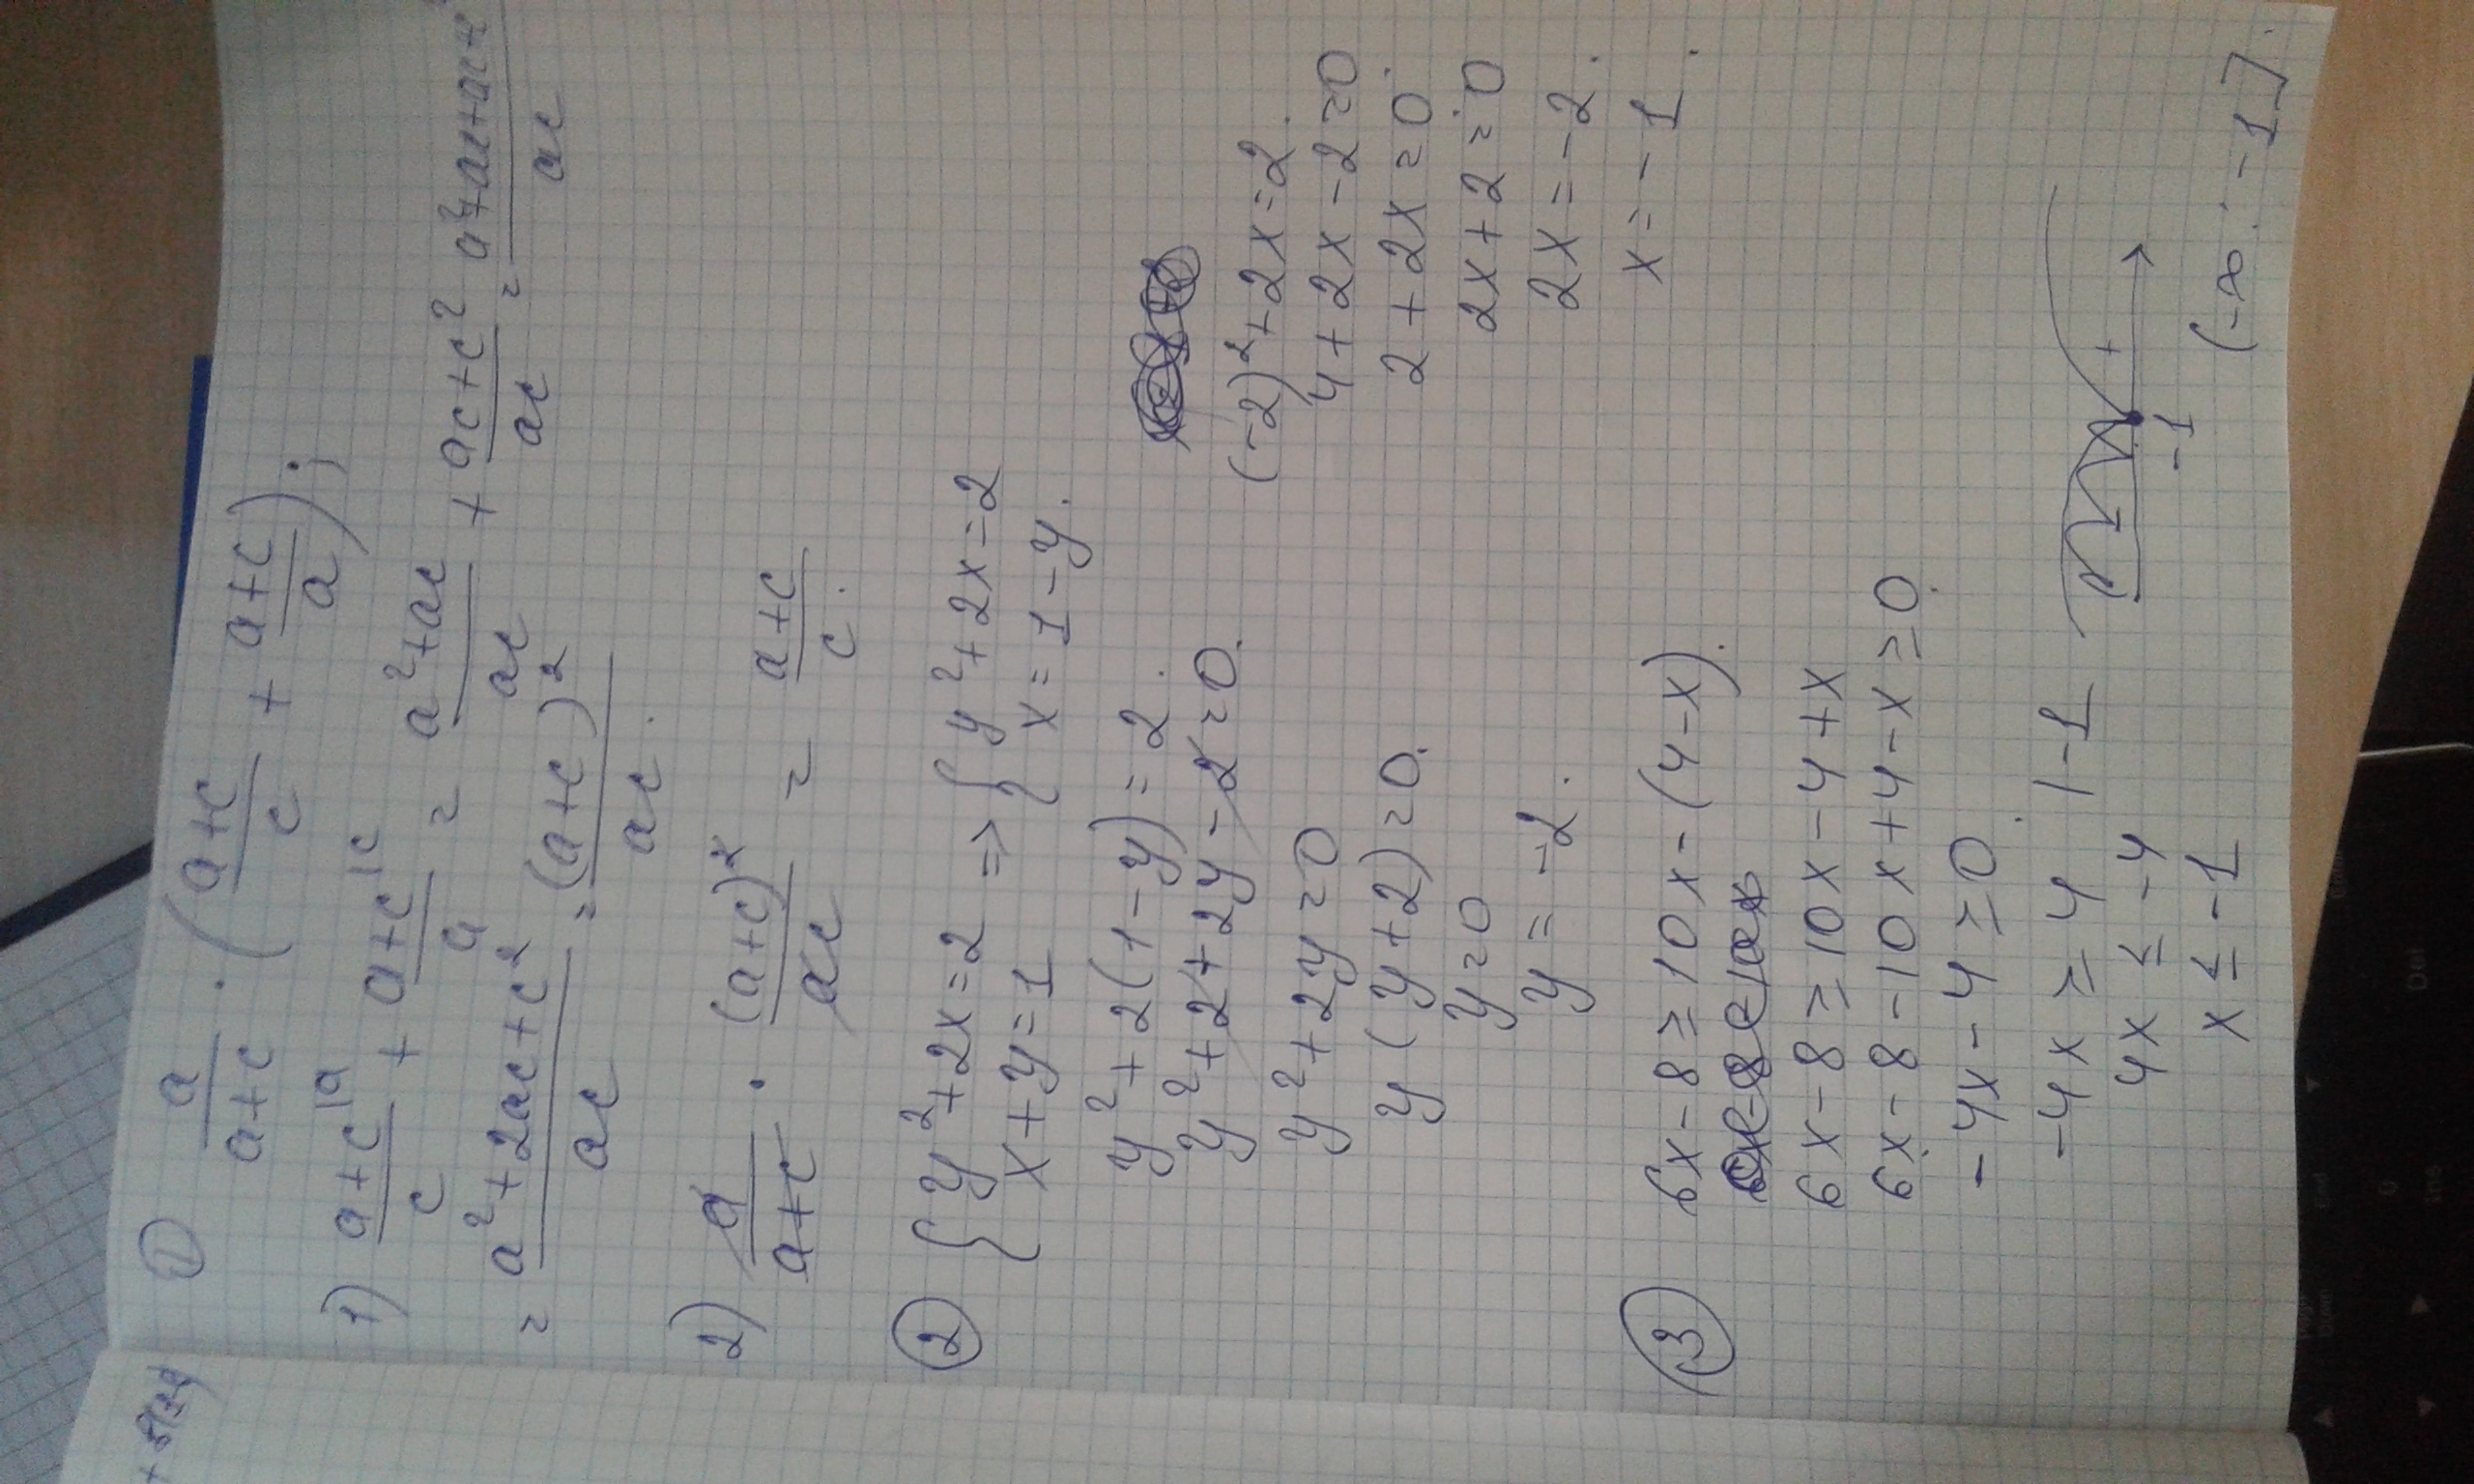 ① a/(a+c) · ((a+c)/c + (a+c)/a);
1) (a+c)/c |a + (a+c)/a |c = (a²+ac)/ac + (ac+c²)/ac = (a²+ac+ac+c²)/ac
= (a²+2ac+c²)/ac = (a+c)²/ac.
2) a/(a+c) · (a+c)²/ac = (a+c)/c.
② { y²+2x=2 ; x+y=1 => { y²+2x=2 ; x=1-y.
y²+2(1-y)=2.
y²+2+2y-2=0.
y²+2y=0
y(y+2)=0.
y=0
y=-2.
(-2)²+2x=2.
4+2x-2=0
2+2x=0.
2x+2=0
2x=-2.
x=-1.
③ 6x-8≥10x-(4-x).
6x-8≥10x-4+x
6x-8-10x+4-x≥0.
-4x-4≥0.
-4x≥4 |-1
4x≤-4
x≤-1
+
-1
(-∞; -1].